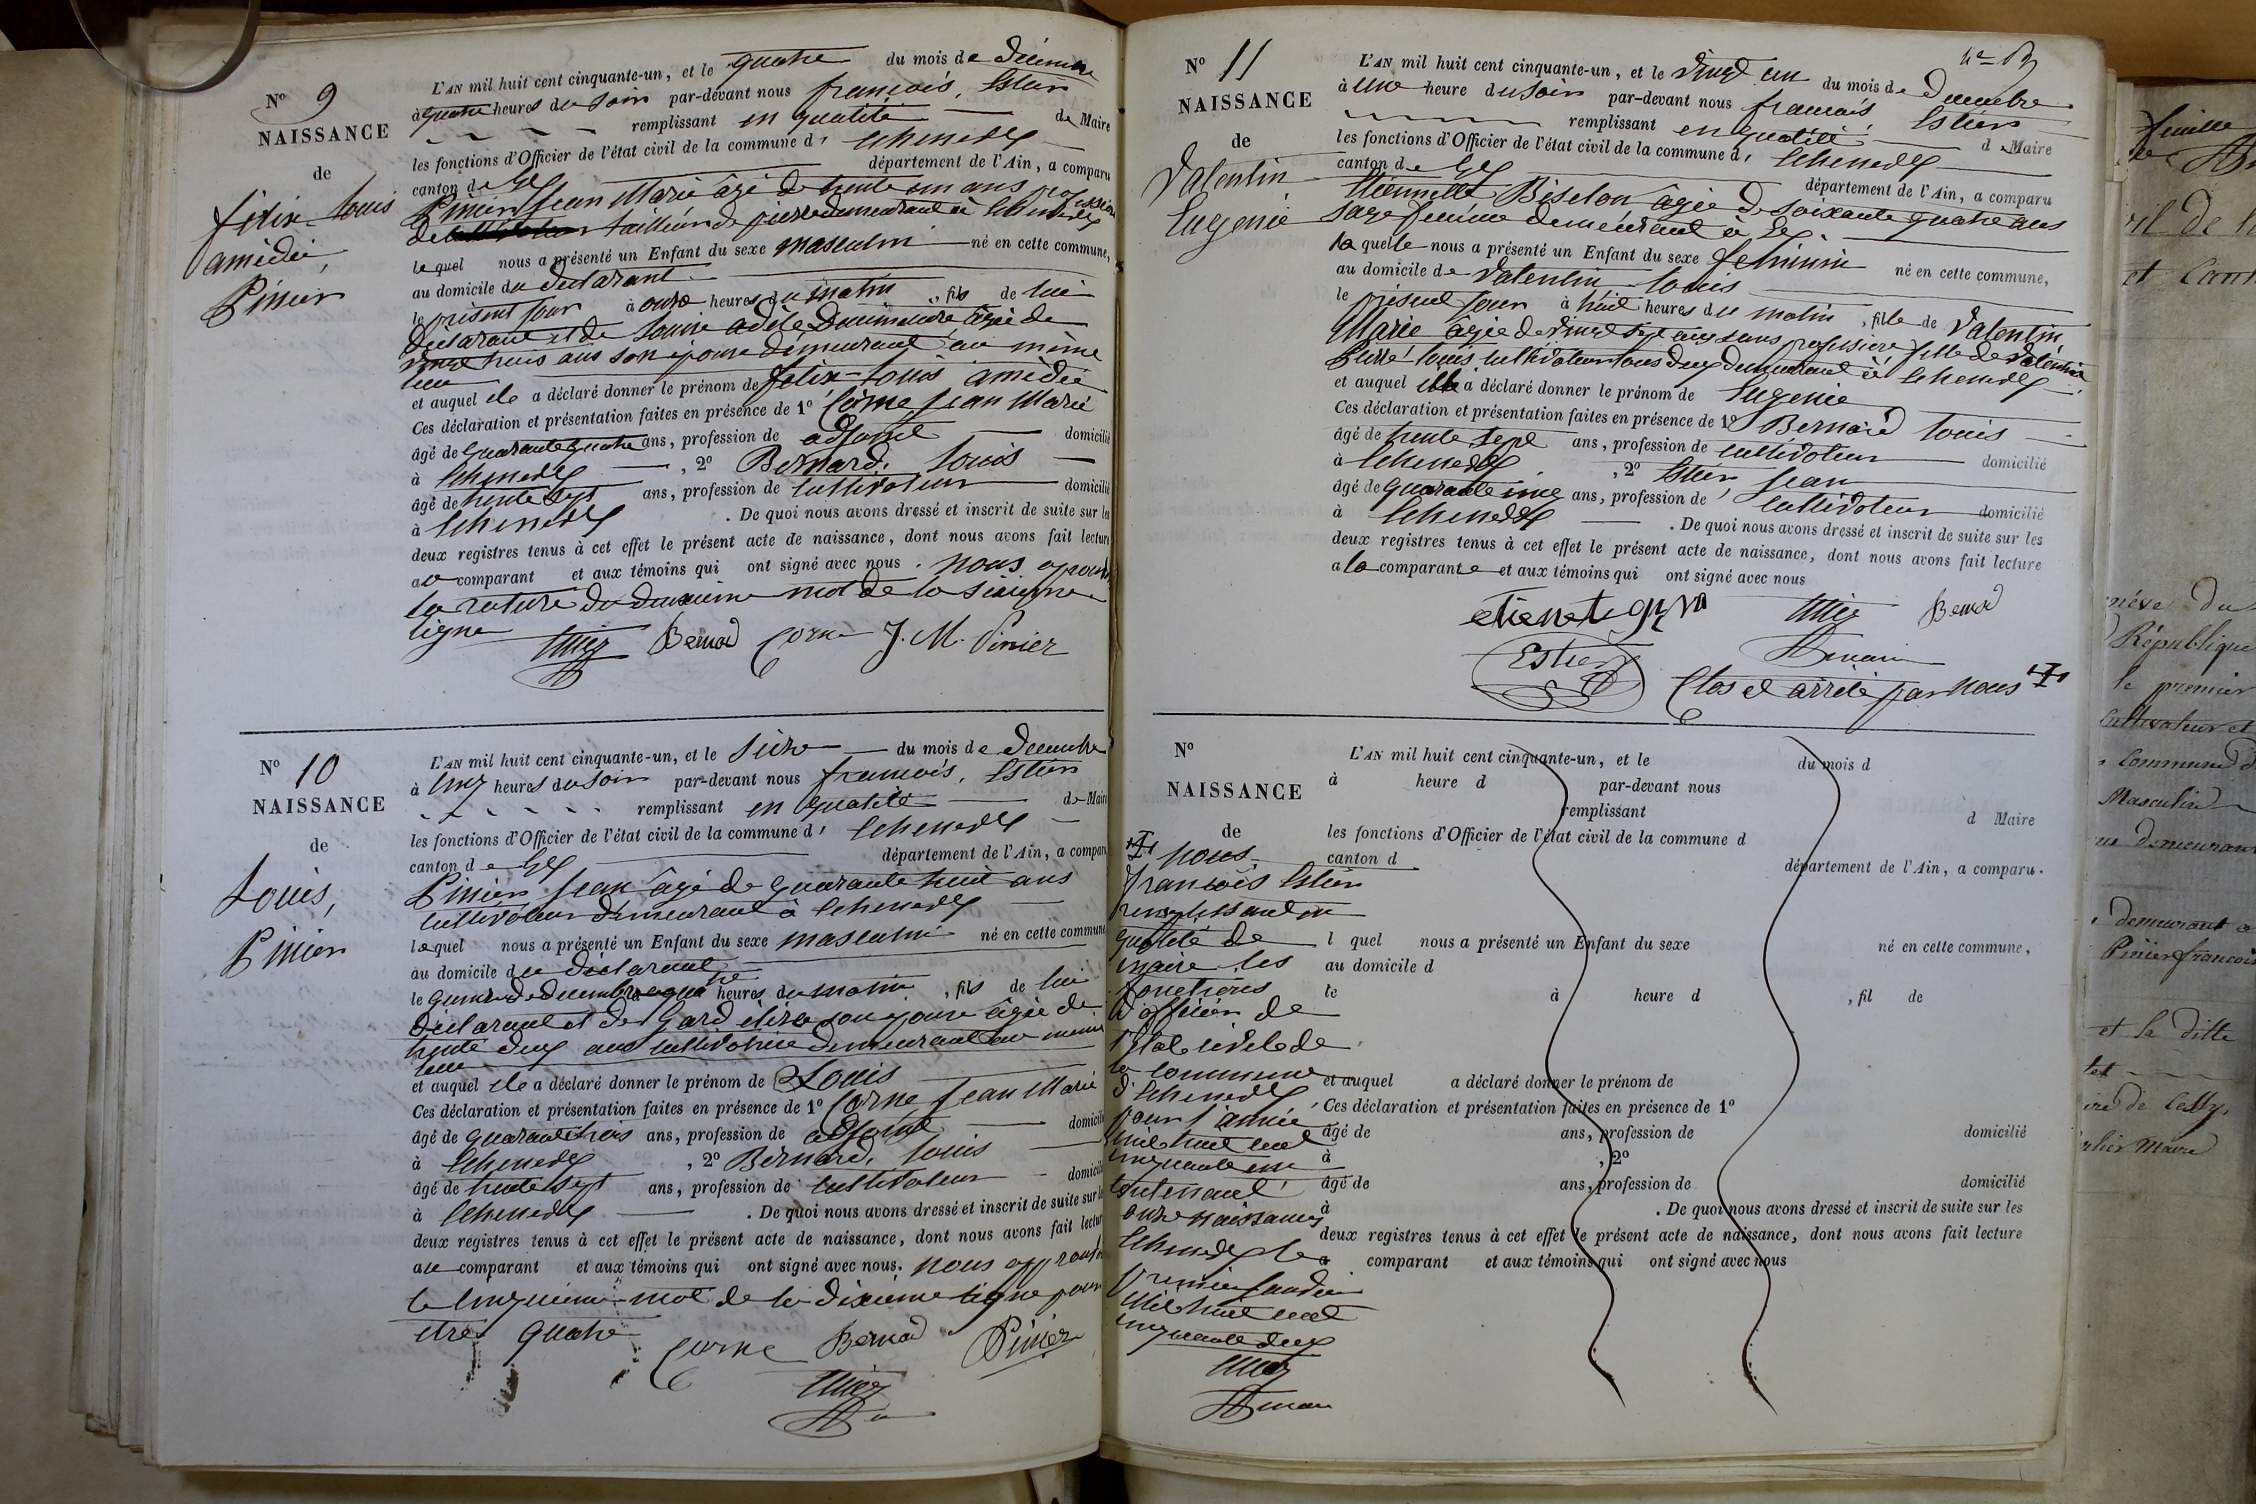 N° 9
NAISSANCE
de
félix louis
amédée,
Pinier
L'AN mil huit cent cinquante-un, et le quatre du mois de décembre
à quatre heures du soir par-devant nous francois, Estier
remplissant en qualité de Maire
les fonctions d'Officier de l'état civil de la commune d'Echenevex
canton de Gex département de l'Ain, a comparu
Pinier Jean Marie âgé de trente un ans profession
de tailleur de pierre demeurant à Echenevex
lequel nous a présenté un Enfant du sexe masculin né en cette commune,
au domicile du déclarant
le présent jour à onze heures du matin, fils de lui
déclarant et de Louise adèle âgée de
vingt trois ans son épouse demeurant au même
lieu
et auquel il a déclaré donner le prénom de félix-louis amédée
Ces déclaration et présentation faites en présence de 1° Corne Jean Marie
âgé de quarante quatre ans, profession de adjoint domicilié
à Echenevex, 2° Bernard, Louis
âgé de trente sept ans, profession de cultivateur domicilié
à Echenevex. De quoi nous avons dressé et inscrit de suite sur les
deux registres tenus à cet effet le présent acte de naissance, dont nous avons fait lecture
au comparant et aux témoins qui ont signé avec nous. nous approuvons
la rature du deuxième mot de la sixième
ligne
Bernard Corne J. M. Pinier
N° 10
NAISSANCE
de
Louis,
Pinier
L'AN mil huit cent cinquante-un, et le seize du mois de décembre
à cinq heures du soir par-devant nous francois, Estier
remplissant en qualité de Maire
les fonctions d'Officier de l'état civil de la commune d'Echenevex
canton de Gex département de l'Ain, a comparu
Pinier Jean âgé de quarante huit ans
cultivateur demeurant à Echenevex
lequel nous a présenté un Enfant du sexe masculin né en cette commune
au domicile du déclarant
le quinze de décembre à quatre heures du matin, fils de lui
déclarant et de Gard élise son épouse âgée de
trente deux ans cultivatrice demeurant au même
lieu
et auquel il a déclaré donner le prénom de Louis
Ces déclaration et présentation faites en présence de 1° Corne Jean Marie
âgé de quarante trois ans, profession de adjoint domicilié
à Echenevex, 2° Bernard, louis
âgé de trente sept ans, profession de cultivateur domicilié
à Echenevex. De quoi nous avons dressé et inscrit de suite sur les
deux registres tenus à cet effet le présent acte de naissance, dont nous avons fait lecture
au comparant et aux témoins qui ont signé avec nous. nous approuvons
le cinquième mot de la dixième ligne pour
être quatre
Corne Bernard Pinier
N° 11
NAISSANCE
de
Valentin
Eugenie
L'AN mil huit cent cinquante-un, et le vingt un du mois de décembre
à une heure du soir par-devant nous francois Estier
remplissant en qualité de Maire
les fonctions d'Officier de l'état civil de la commune d'Echenevex
canton de Gex département de l'Ain, a comparu
Etiennette Biselon âgée de soixante quatre ans
sage femme demeurant à Gex
laquelle nous a présenté un Enfant du sexe feminin né en cette commune,
au domicile de Valentin louis
le présent jour à huit heures du matin, fille de Valentin
Marie âgée de vingt sept ans sans profession fille de Valentin
Pierre louis cultivateur tous deux demeurant à Echenevex
et auquel elle a déclaré donner le prénom de Eugenie
Ces déclaration et présentation faites en présence de 1° Bernard louis
âgé de trente sept ans, profession de cultivateur domicilié
à Echenevex, 2° Estier Jean
âgé de quarante cinq ans, profession de cultivateur domicilié
à Echenevex. De quoi nous avons dressé et inscrit de suite sur les
deux registres tenus à cet effet le présent acte de naissance, dont nous avons fait lecture
a la comparante et aux témoins qui ont signé avec nous
Bernard
Estier
Clos et arrêté par nous
N°
NAISSANCE
de
nous
francois Estier
remplissant en
qualité de
maire les
fonctions
d'officier de
l'état civil de
la commune
d'Echenevex
pour l'année
mil huit cent
cinquante un
contenant
onze naissances
Echenevex le
premier janvier
mil huit cent
cinquante deux
L'AN mil huit cent cinquante-un, et le du mois d
à heure d par-devant nous
remplissant d Maire
les fonctions d'Officier de l'état civil de la commune d
canton d département de l'Ain, a comparu.
l quel nous a présenté un Enfant du sexe né en cette commune,
au domicile d
le à heure d, fil de
et auquel a déclaré donner le prénom de
Ces déclaration et présentation faites en présence de 1°
âgé de ans, profession de domicilié
à, 2°
âgé de ans, profession de domicilié
à. De quoi nous avons dressé et inscrit de suite sur les
deux registres tenus à cet effet le présent acte de naissance, dont nous avons fait lecture
a comparant et aux témoins qui ont signé avec nous
feuille
République
le premier
cultivateur et
commune d
Masculin
demeurant a
Pinier francois
et la ditte
de Cessy
Maire